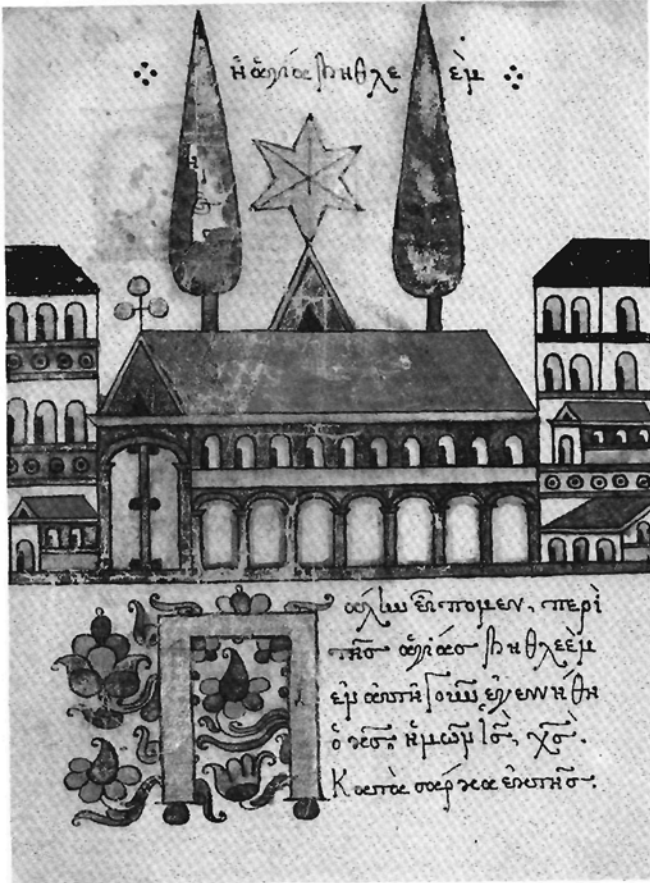 ἡ ἁγία Βηθλε εὲμ
Πάλιν εἴπομεν, περὶ
τῆς ἁγίας Βηθλεὲμ
ἐν αὐτῆ γοῦν ἐγεννήθη
ὁ κς, ἡμῶν ἰς, χς.
Κατὰ σάρκα ἐκ τῆς.